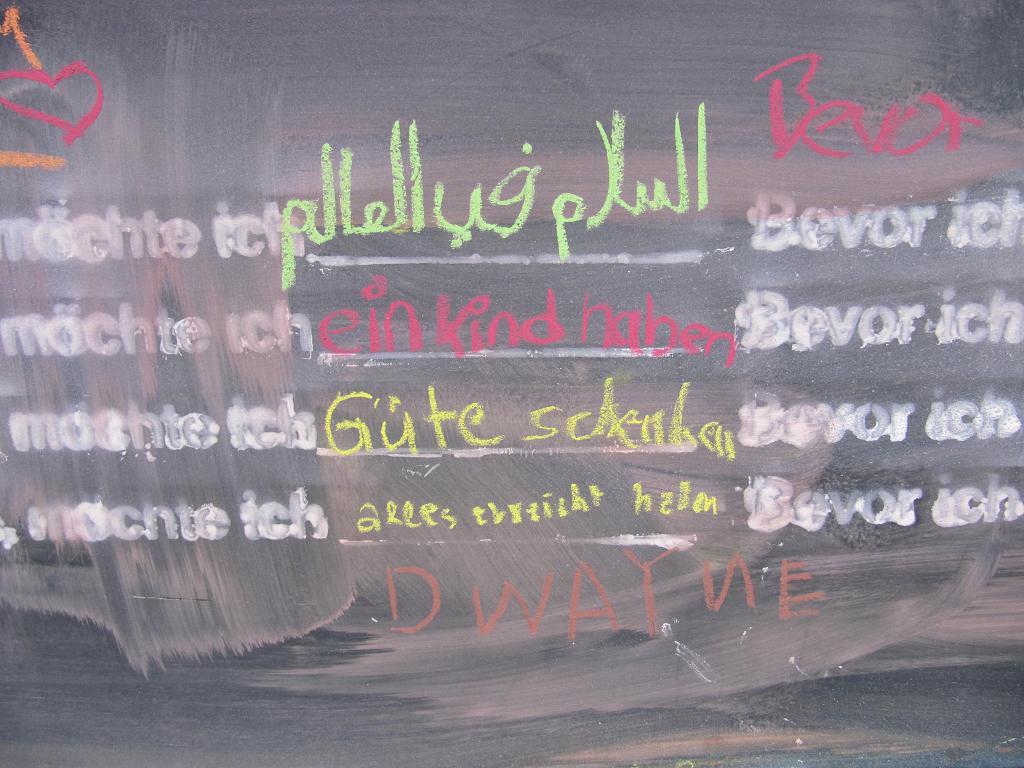 1
Bevor
möchte ich السلام في العالم Bevor ich
möchte ich ein Kind haben Bevor ich
möchte ich Güte schenken Bevor ich
, möchte ich alles erreicht haben Bevor ich
DWAYNE